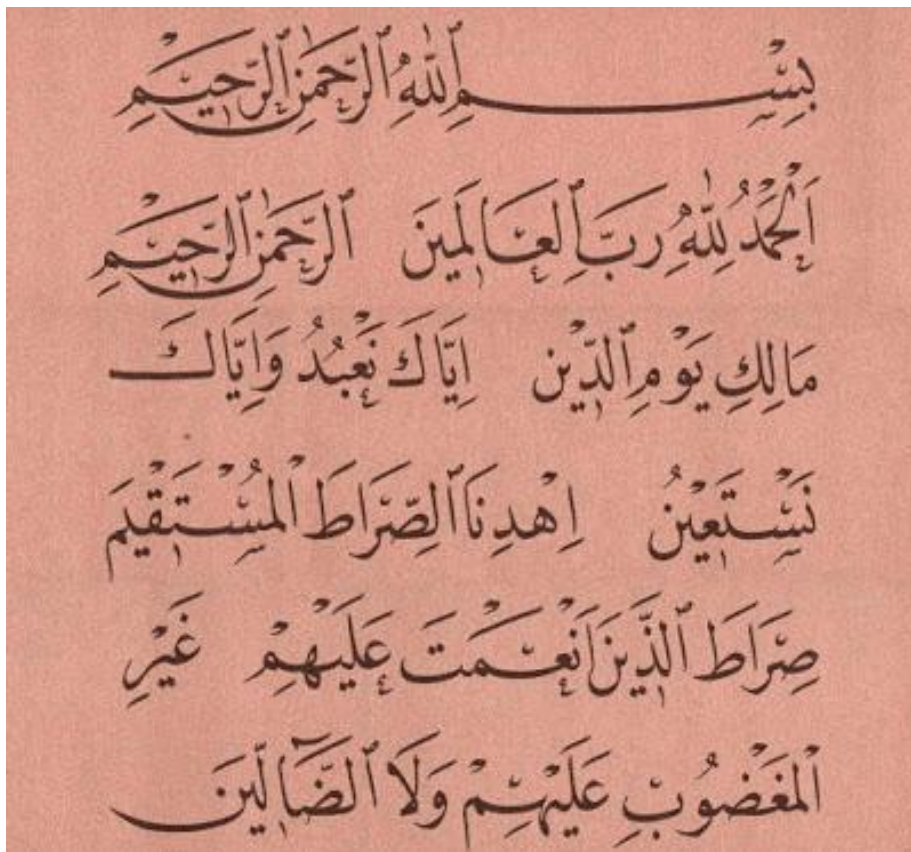 بِسْمِ ٱللّٰهِ ٱلرَّحْمٰنِ ٱلرَّحِيْمِ
اَلْحَمْدُ لِلّٰهِ رَبِّ ٱلْعَالَمِينَ ٱلرَّحْمٰنِ ٱلرَّحِيْمِ
مَالِكِ يَوْمِ ٱلدِّيْنِ اِيَّاكَ نَعْبُدُ وَاِيَّاكَ
نَسْتَعِيْنُ اِهْدِنَا ٱلصِّرَاطَ ٱلْمُسْتَقِيْمَ
صِرَاطَ ٱلَّذِيْنَ اَنْعَمْتَ عَلَيْهِمْ غَيْرِ
ٱلْمَغْضُوْبِ عَلَيْهِمْ وَلَا ٱلضَّآلِّيْنَ